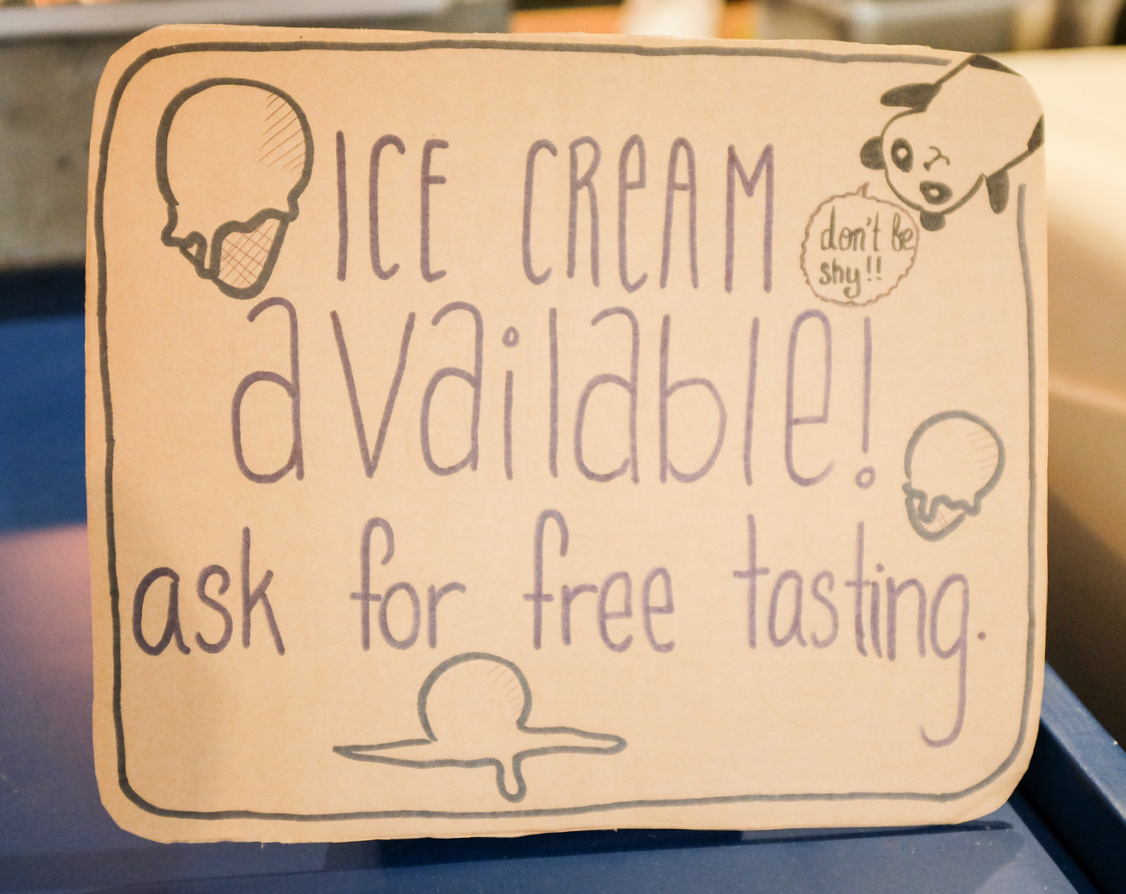 ICE CREAM
don't be
shy!!
available!
ask for free tasting.